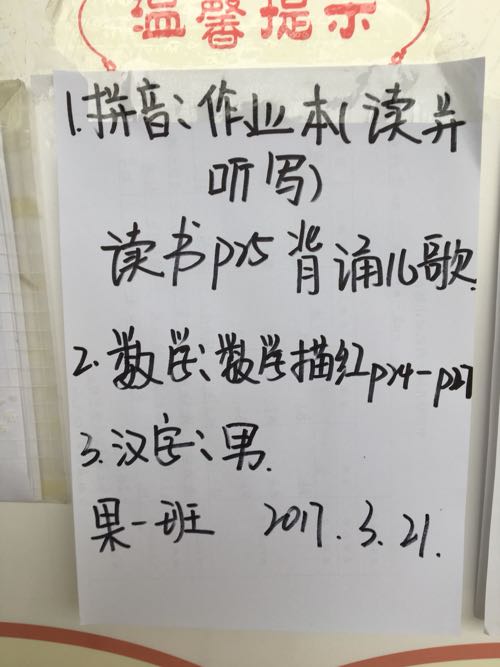 温馨提示
1.拼音:作业本(读并
听写)
读书p25背诵儿歌.
2.数学:数学描红p24-p27
3.汉字:男.
果一班 2017.3.21.